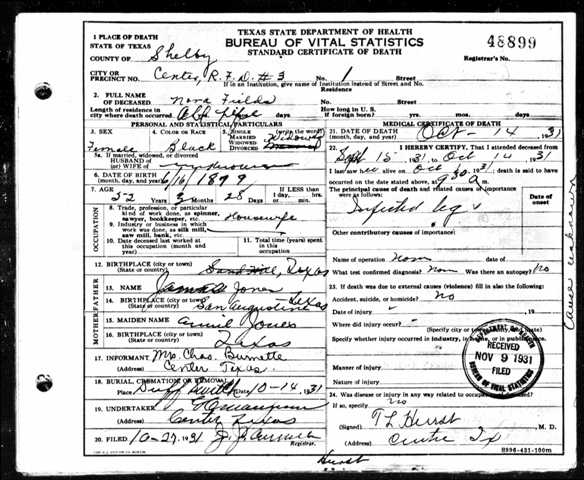 TEXAS STATE DEPARTMENT OF HEALTH
BUREAU OF VITAL STATISTICS
STANDARD CERTIFICATE OF DEATH
48899
Registrar's No.
1 PLACE OF DEATH
STATE OF TEXAS
COUNTY OF Shelby
CITY OR PRECINCT NO. Center, R.F.D. #3 No. 1 Street
If in an Institution, give name of Institution instead of Street and No.
2. FULL NAME OF DECEASED Nora Fields Residence No. Street
Length of residence in city where death occurred days How long in U. S. if foreign born? years months days
PERSONAL AND STATISTICAL PARTICULARS
3. SEX Female
4. COLOR OR RACE Black
5. SINGLE MARRIED WIDOWED DIVORCED (write the word) Widowed
5a. If married, widowed, or divorced HUSBAND OF (or) WIFE OF
6. DATE OF BIRTH (month, day, year)
7. AGE 52 Years 3 Months 28 Days If LESS than 1 day hrs. min.
OCCUPATION
8. Trade, profession, or particular kind of work done, as spinner, sawyer, bookkeeper, etc. Housewife
9. Industry or business in which work was done, as silk mill, saw mill, bank, etc.
10. Date deceased last worked at this occupation (month and year)
11. Total time (years) spent in this occupation
12. BIRTHPLACE (city or town) (State or country) Texas
MOTHER FATHER
13. NAME Jones
14. BIRTHPLACE (city or town) (State or country) San Augustine Texas
15. MAIDEN NAME Jones
16. BIRTHPLACE (city or town) (State or country) Texas
17. INFORMANT Mrs. Chas. Burnette
Center Texas.
18. BURIAL, CREMATION OR REMOVAL
Place Date 10-14 1931
19. UNDERTAKER
Center Texas
20. FILED 10-27 1931 Registrar.
MEDICAL CERTIFICATE OF DEATH
21. DATE OF DEATH (month, day, year) Oct - 14 1931
22. I HEREBY CERTIFY, That I attended deceased from
Sept 15 1931 to Oct 14 1931
I last saw her alive on Oct 1931; death is said to have occurred on the date stated above, at 9:30 a m.
The principal cause of death and related causes of importance were as follows:
Date of onset
Infected leg
Other contributory causes of importance:
Name of operation None
What test confirmed diagnosis? None Was there an autopsy? No
23. If death was due to external causes (violence) fill in also the following:
Accident, suicide, or homicide? No
Date of injury 19
Where did injury occur?
(Specify city or town, county, and State)
Specify whether injury occurred in industry, in home, or in public place.
Manner of injury
Nature of injury
24. Was disease or injury in any way related to occupation of deceased? no
If so, specify
(Signed) T L Hurst M. D.
Center Tx
DEPARTMENT OF HEALTH
RECEIVED
NOV 9 1931
FILED
BUREAU OF VITAL STATISTICS
Cause unknown
Hurst
S996-431-100m